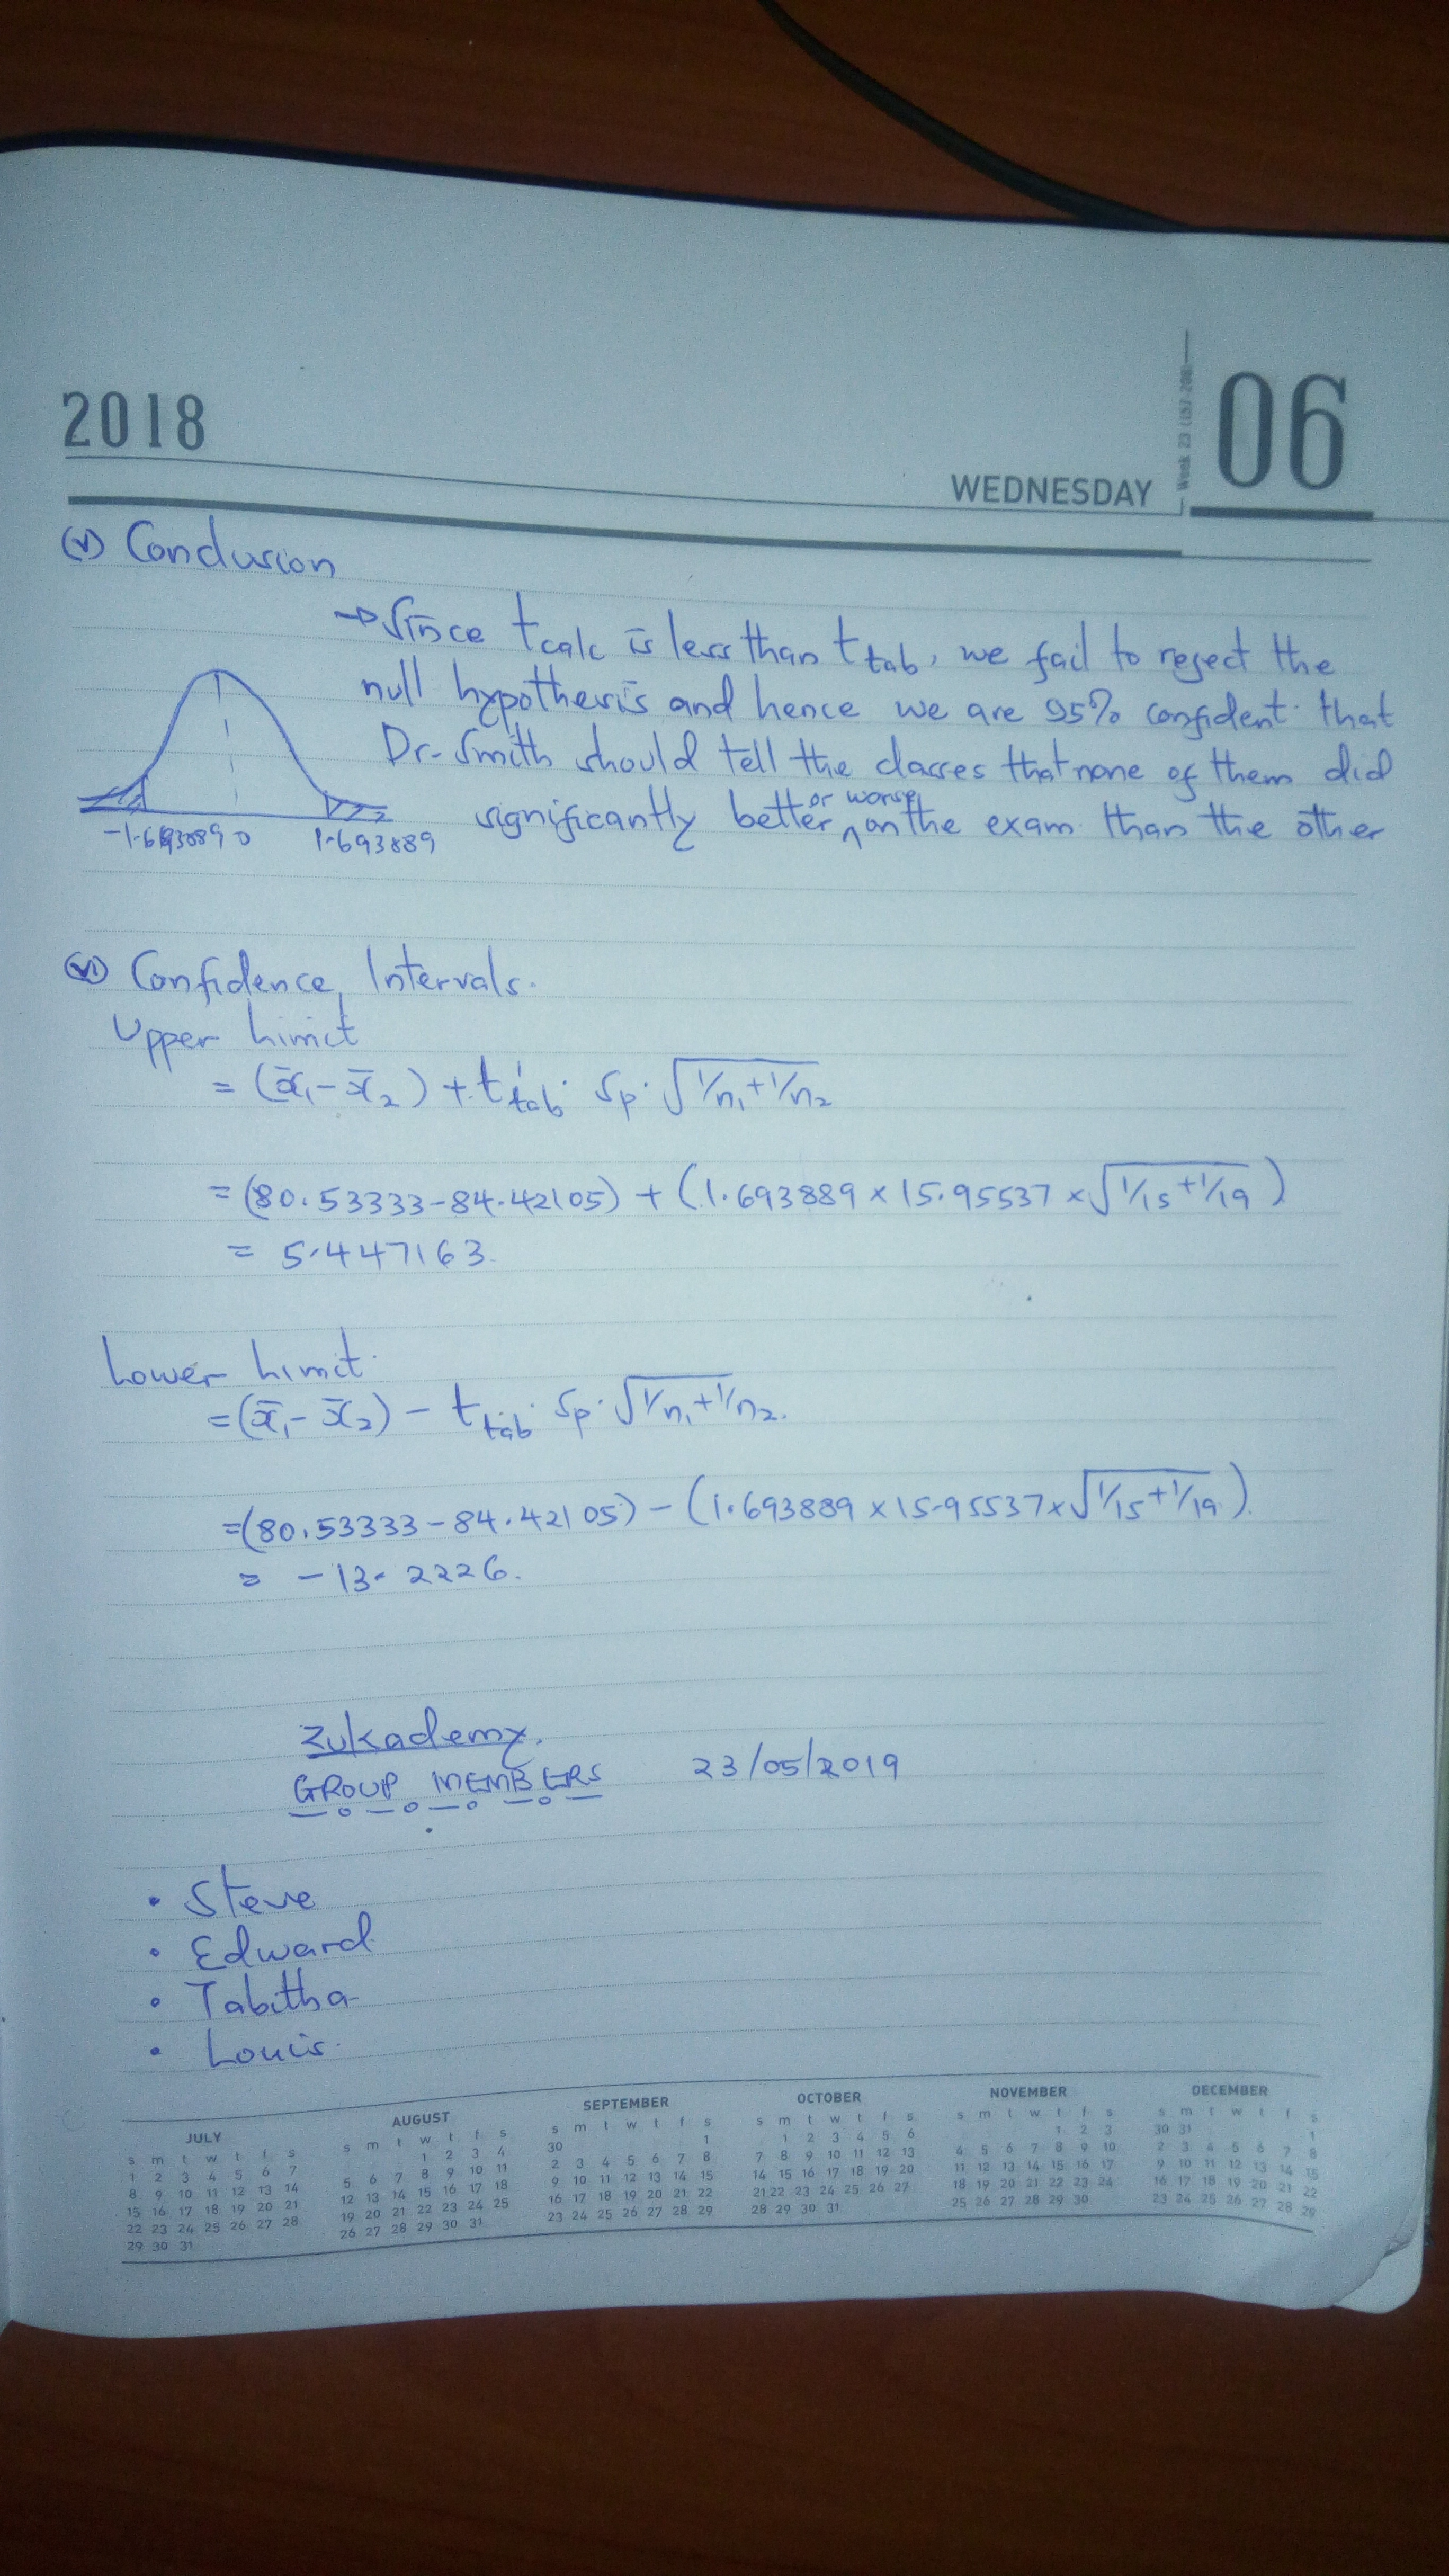 2018
Week 23 (157-208)
06
WEDNESDAY
(v) Conclusion
→ Since tcalc is less than ttab, we fail to reject the
null hypothesis and hence we are 95% confident that
Dr. Smith should tell the classes that none of them did
significantly better or worse on the exam than the other
-1.693889 0 1.693889
(vi) Confidence Intervals.
Upper Limit
= (x̄₁ - x̄₂) + ttab · Sp · √1/n₁ + 1/n₂
= (80.53333 - 84.42105) + (1.693889 × 15.95537 × √1/15 + 1/19)
= 5.447163.
Lower Limit.
= (x̄₁ - x̄₂) - ttab · Sp · √1/n₁ + 1/n₂.
= (80.53333 - 84.42105) - (1.693889 × 15.95537 × √1/15 + 1/19).
= -13.2226.
Zukademy.
GROUP MEMBERS 23/05/2019
• Steve
• Edward
• Tabitha
• Louis.
JULY
s m t w t f s
1 2 3 4 5 6 7
8 9 10 11 12 13 14
15 16 17 18 19 20 21
22 23 24 25 26 27 28
29 30 31
AUGUST
s m t w t f s
1 2 3 4
5 6 7 8 9 10 11
12 13 14 15 16 17 18
19 20 21 22 23 24 25
26 27 28 29 30 31
SEPTEMBER
s m t w t f s
30 1
2 3 4 5 6 7 8
9 10 11 12 13 14 15
16 17 18 19 20 21 22
23 24 25 26 27 28 29
OCTOBER
s m t w t f s
1 2 3 4 5 6
7 8 9 10 11 12 13
14 15 16 17 18 19 20
21 22 23 24 25 26 27
28 29 30 31
NOVEMBER
s m t w t f s
1 2 3
4 5 6 7 8 9 10
11 12 13 14 15 16 17
18 19 20 21 22 23 24
25 26 27 28 29 30
DECEMBER
s m t w t f s
30 31 1
2 3 4 5 6 7 8
9 10 11 12 13 14 15
16 17 18 19 20 21 22
23 24 25 26 27 28 29